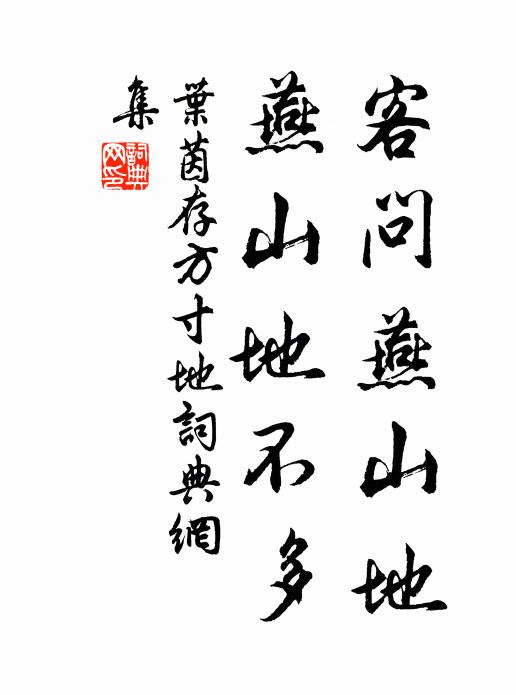 客問燕山地
燕山地不多
葉茵存方寸地詞典網
集
詞典網印